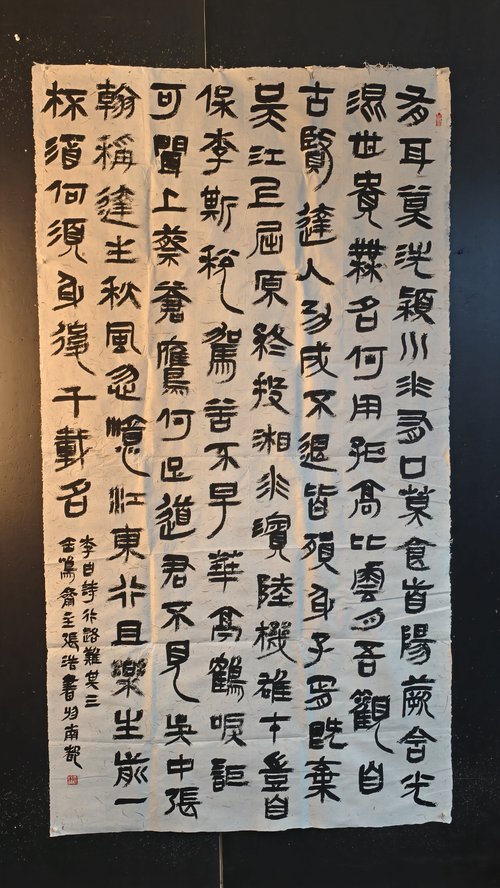 有耳莫洗潁川水有口莫食首陽蕨含光
混世貴無名何用孤高比雲月吾觀自
古賢達人功成不退皆殞身子胥既棄
吳江上屈原終投湘水濱陸機雄才豈自
保李斯稅駕苦不早華亭鶴唳詎
可聞上蔡蒼鷹何足道君不見吳中張
翰稱達生秋風忽憶江東行且樂生前一
杯酒何須身後千載名
李白詩行路難其三
鳴齋主張浩書於南都